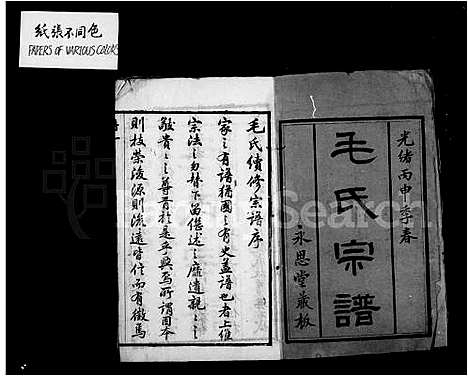 紙張不同色
PAPERS OF VARIOUS COLORS
光緒丙申季春
毛氏宗譜
永思堂藏板
毛氏續修宗譜序
家之有譜猶國之有史蓋譜也者上
宗法之勿替下留繼述之靡遺親之
敬貴之尊者於是乎興焉所謂固本
則枝榮浚源則流遠皆信而有徵焉
FamilySearch